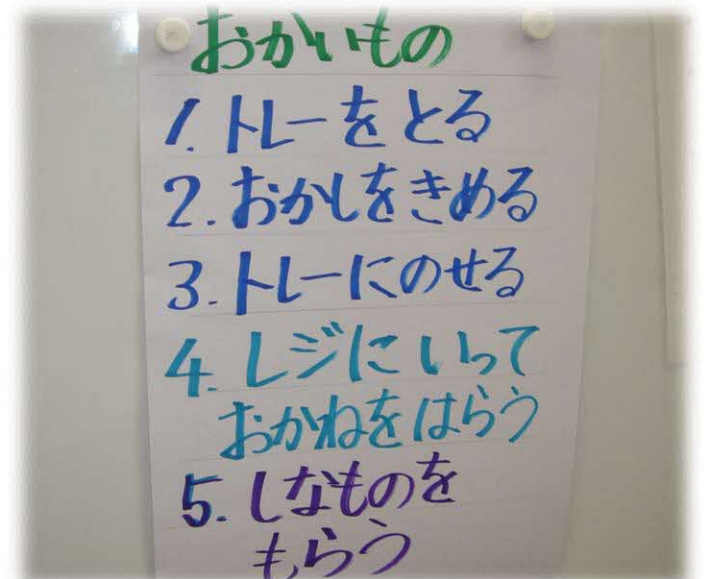 おかいもの
1. トレーをとる
2. おかしをきめる
3. トレーにのせる
4. レジにいって
おかねをはらう
5. しなものを
もらう